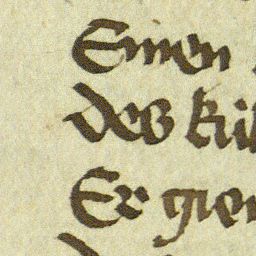 Einen
des kü
Er gien